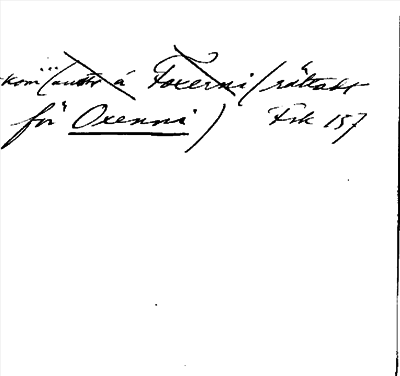 kom (austr á Foxerni (rättat
för Oxenni) Fsk 157